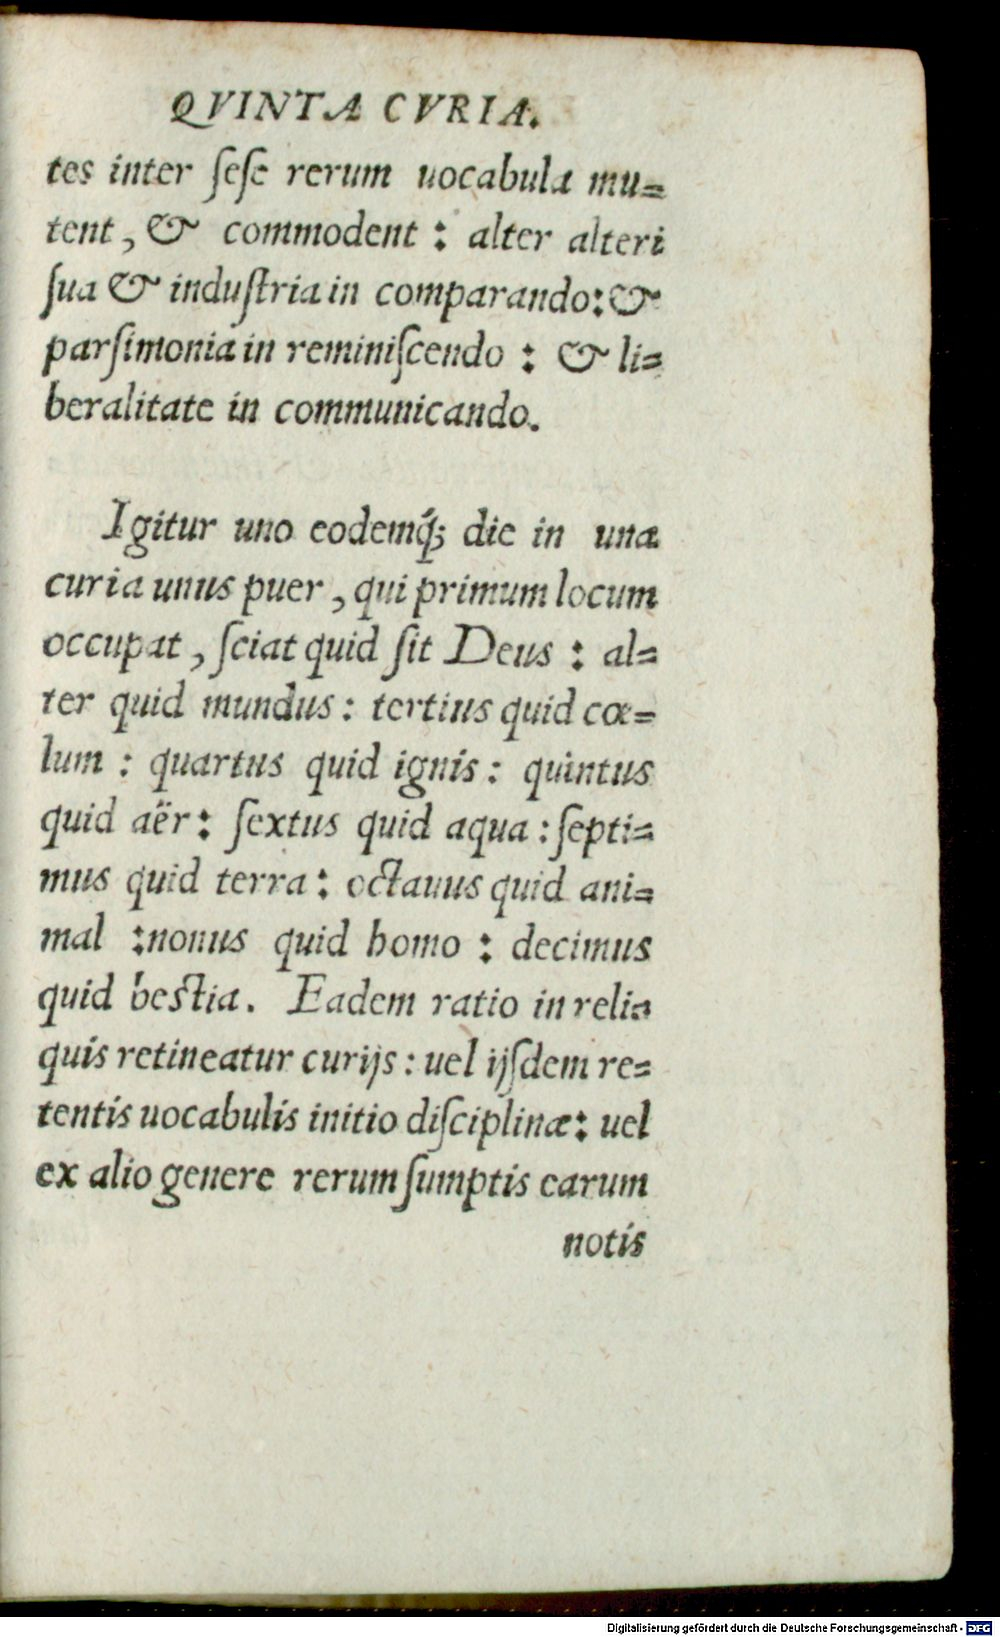 QVINTA CVRIA.
tes inter ſeſe rerum uocabula mu=
tent, & commodent : alter alteri
ſua & induſtria in comparando: &
parſimonia in reminiſcendo : & li=
beralitate in communicando.
Igitur uno eodemq́; die in una
curia unus puer, qui primum locum
occupat, ſciat quid ſit Deus : al=
ter quid mundus : tertius quid cœ=
lum : quartus quid ignis : quintus
quid aër : ſextus quid aqua : ſepti=
mus quid terra : octauus quid ani=
mal :nonus quid homo : decimus
quid beſtia. Eadem ratio in reli=
quis retineatur curijs : uel ijſdem re=
tentis uocabulis initio diſciplinæ: uel
ex alio genere rerum ſumptis earum
notis
Digitalisierung gefördert durch die Deutsche Forschungsgemeinschaft - DFG